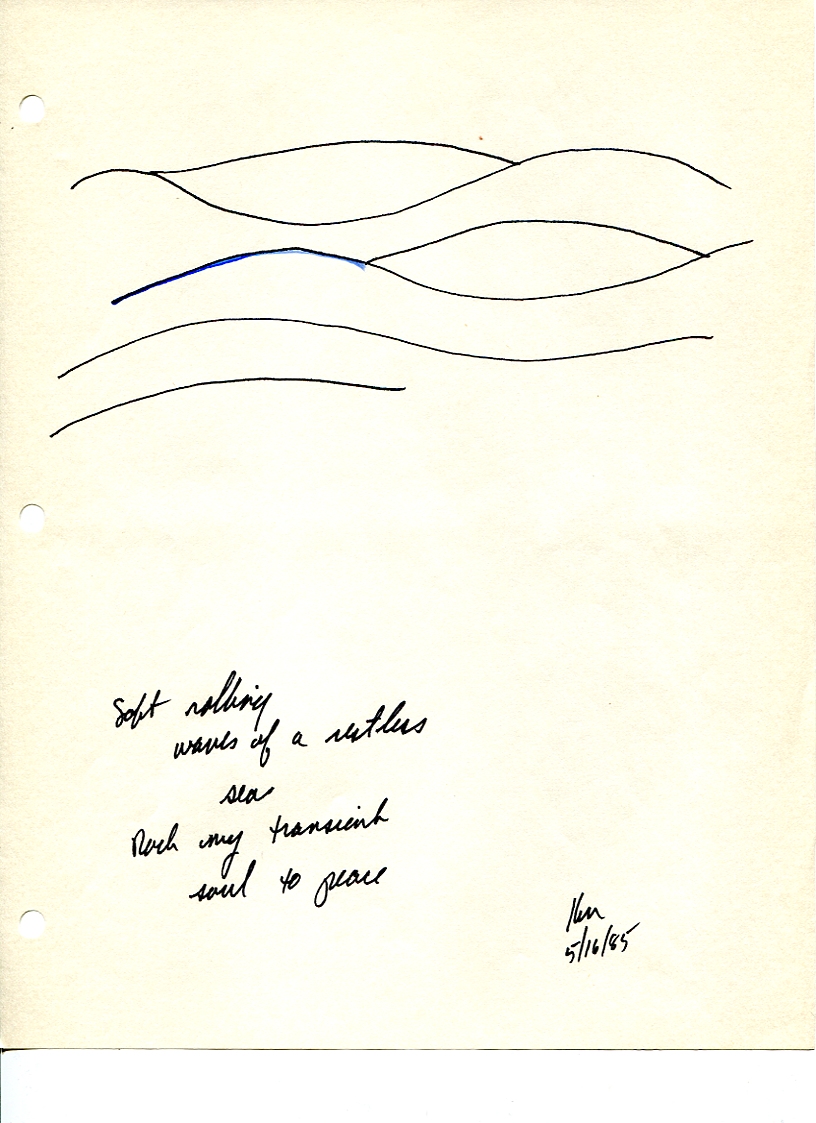 Soft rolling
waves of a restless
sea
Rock my transient
soul to peace
Ken
5/16/85